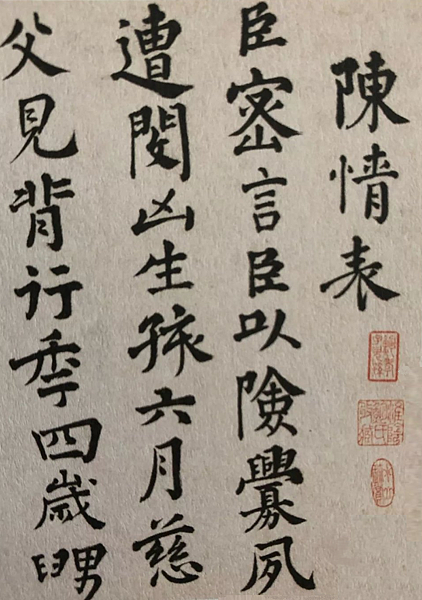 陳情表
臣密言臣以險釁夙
遭閔凶生孩六月慈
父見背行秊四歲舅